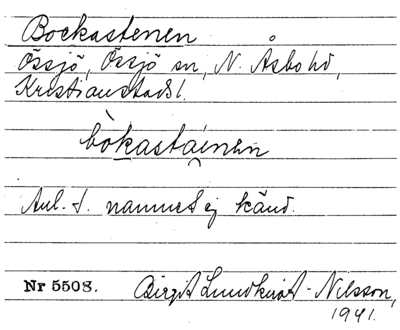 Bockastenen
Össjö, Össjö sn, N. Åsbo hd,
Kristianstads l.
bòkastaínen
Anl. t. namnet ej känd.
Nr 5508. Birgit Lundkvist-Nilsson,
1941.